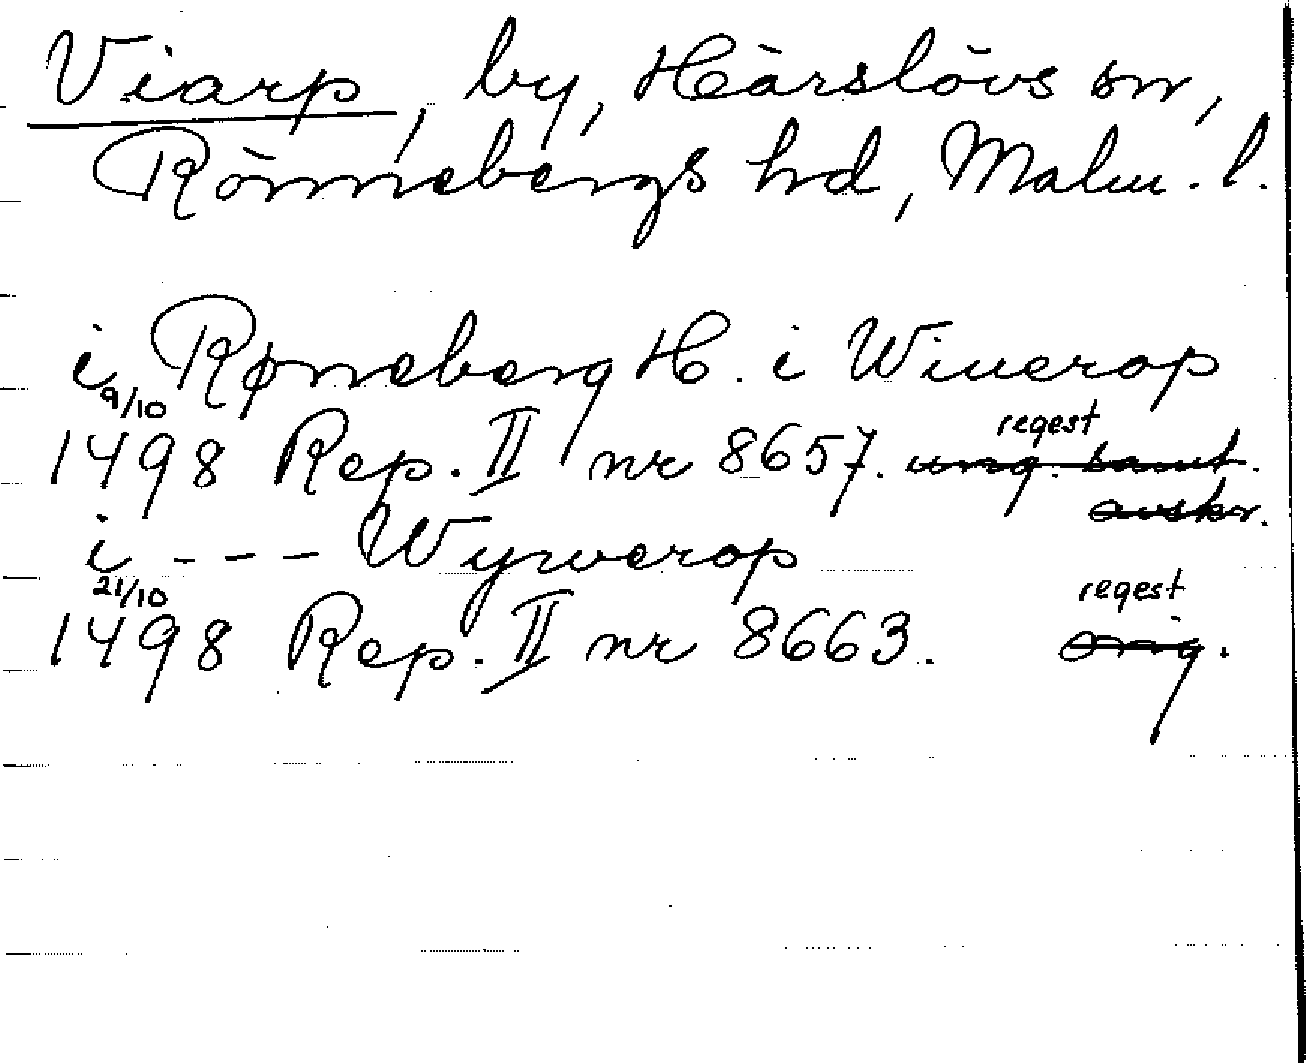 Viarp, by, Härslövs sn,
Rönnebergs hd, Malm. l.
i Rønneberg H. i Wiuerop
9/10
1498 Rep. II nr 8657. ung. samt. regest
avskr.
i - - - Wywerop
21/10
1498 Rep. II nr 8663. orig. regest